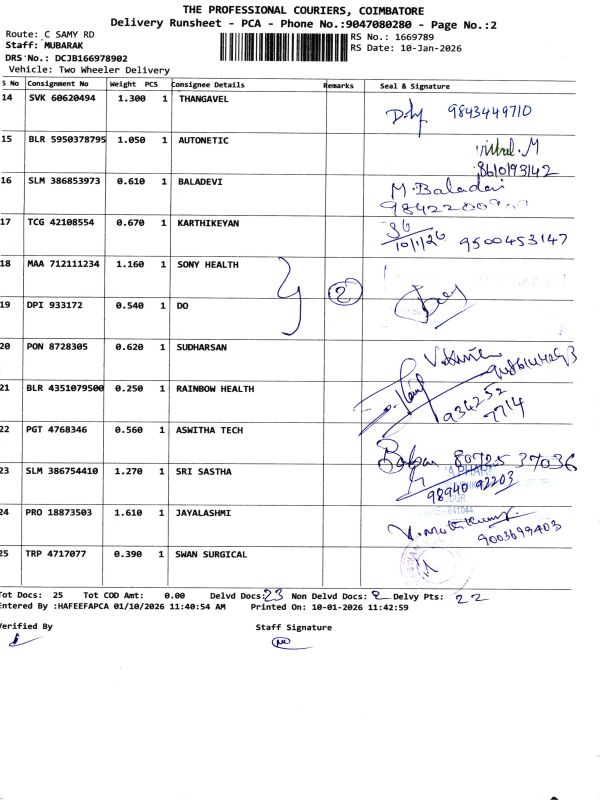 THE PROFESSIONAL COURIERS, COIMBATORE
Delivery Runsheet - PCA - Phone No.:9047080280 - Page No.:2
Route: C SAMY RD
RS No.: 1669789
Staff: MUBARAK
RS Date: 10-Jan-2026
DRS No.: DCJB166978902
Vehicle: Two Wheeler Delivery
S No Consignment No Weight PCS Consignee Details Remarks Seal & Signature
14 SVK 60620494 1.300 1 THANGAVEL 9843449710
15 BLR 5950378795 1.050 1 AUTONETIC
16 SLM 386853973 0.610 1 BALADEVI M. Baladevi
17 TCG 42108554 0.670 1 KARTHIKEYAN 10/1/26 9500453147
18 MAA 712111234 1.160 1 SONY HEALTH 2
19 DPI 933172 0.540 1 DO
20 PON 8728305 0.620 1 SUDHARSAN
21 BLR 4351079500 0.250 1 RAINBOW HEALTH 934252 7714
22 PGT 4768346 0.560 1 ASWITHA TECH 80725 37036
23 SLM 386754410 1.270 1 SRI SASTHA 98940 92203
24 PRO 18873503 1.610 1 JAYALASHMI 9003699403
25 TRP 4717077 0.390 1 SWAN SURGICAL
Tot Docs: 25 Tot COD Amt: 0.00 Delvd Docs: 23 Non Delvd Docs: 2 Delvy Pts: 22
Entered By :HAFEEFAPCA 01/10/2026 11:40:54 AM Printed On: 10-01-2026 11:42:59
Verified By Staff Signature